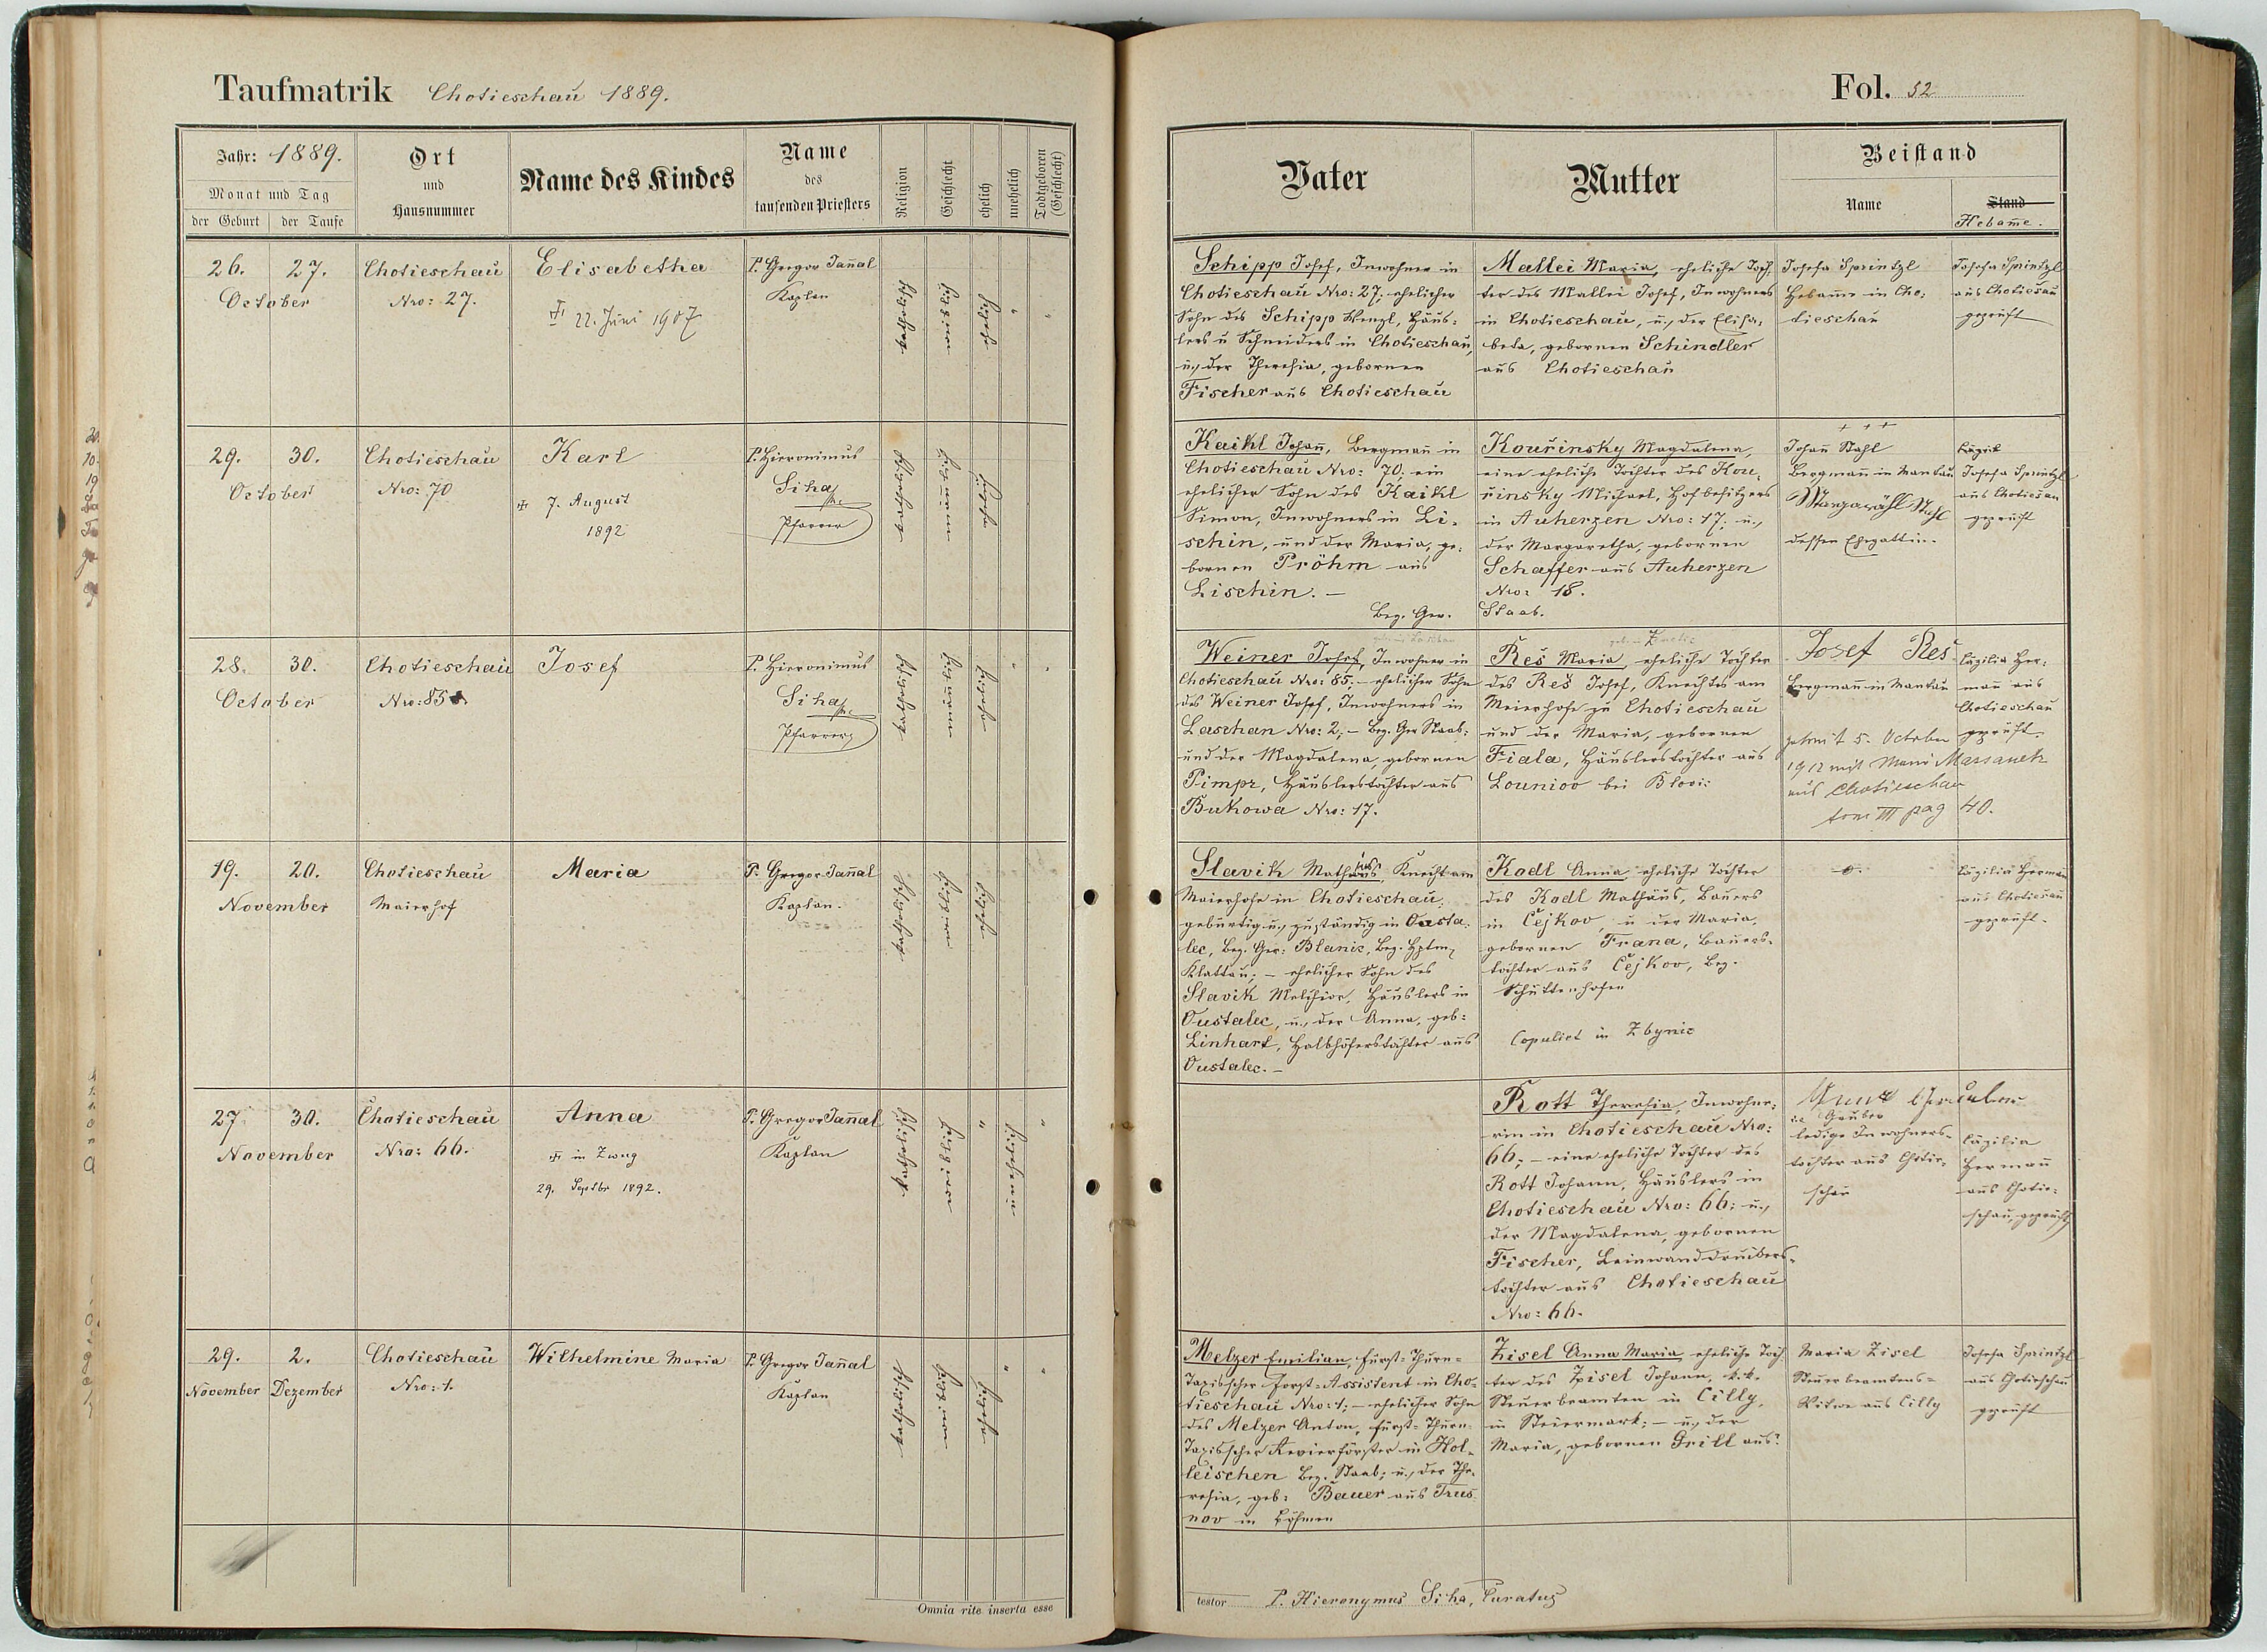 Taufmatrik Chotieschau 1889.
Jahr: 1889.
Monat und Tag
der Geburt
der Taufe
Ort
und
Hausnummer
Name des Kindes
Name
des
taufenden Priesters
Religion
Geschlecht
ehelich
unehelich
Todtgeboren
(Geschlecht)
26.
27.
October
Chotieschau
Nro: 27.
Elisabetha
22. Juni 1907
P. Gregor Jan̄al
Kaplan
katholisch
weiblich
ehelich
29.
30.
October
Chotieschau
Nro: 70
Karl
7. August
1892
P. Hieronimus
Siha
Pfarrer
katholisch
28.
30.
October
Chotieschau
Nro: 85
Josef
P. Hieronimus
Siha
Pfarrer
katholisch
ehelich
19.
20.
November
Chotieschau
Maierhof
Maria
P. Gregor Jan̄al
Kaplan.
katholisch
weiblich
ehelich
27
30.
November
Chotieschau
Nro: 66.
Anna
in Zwug
29. Septbr 1892.
P. Gregor Jan̄al
Kaplan
katholisch
weiblich
unehelich
29.
2.
November Dezember
Chotieschau
Nro: 1.
Wilhelmine Maria
P. Gregor Jan̄al
Kaplan
katholisch
weiblich
ehelich
Omnia rite inserta esse
Fol. 52
Vater
Mutter
Beistand
Name
Stand
Hebam̄e.
Schipp Josef, Inwohner in
Chotieschau Nro: 27; ehelicher
Sohn des Schipp Wenzl, Häus-
lers u Schneiders in Chotieschau,
u., der Theresia, gebornen
Fischer aus Chotieschau
Mallei Maria, eheliche Toch-
ter des Mallei Josef, Inwohners
in Chotieschau, u., der Elisa-
beta, gebornen Schindler
aus Chotieschau
Josefa Sprintzl
Hebam̄e in Cho-
tieschau
Josefa Sprintzl
aus Chotieschau
geprüft
Kaikl Johan̄, Bergman̄ in
Chotieschau Nro: 70, ein
ehelicher Sohn des Kaikl
Simon, Inwohners in Li-
schin, und der Maria, ge-
bornen Pröhm aus
Lischin. —
Bez. Ger.
Kouřinsky Magdalena,
eine eheliche Tochter des Kou-
řinsky Michael, Hofbesitzers
in Auherzen Nro: 17; u.,
der Margaretha, gebornen
Schaffer aus Auherzen
Nro: 18.
Staab.
+ + +
Johan̄ Stahl
Bergman̄ in Mantau
dessen Ehegattin.
Josefa Sprintzl
aus Chotieschau
geprüft
Weiner Josef, Inwohner in
Chotieschau Nro: 85; — ehelicher Sohn
des Weiner Josef, Inwohners in
Laschan Nro: 2; — Bez. Ger Staab;
und der Magdalena, gebornen
Pimpr, Häuslerstochter aus
Bukowa Nro: 17.
Reš Maria eheliche Tochter
des Reš Josef, Knechtes am
Meierhofe zu Chotieschau
und der Maria, gebornen
Fiala, Häuslerstochter aus
Louniov bei Blovic
Josef Reš
Bergman̄ in Mantau
getraut 5. October
1912 mit Marie Massanek
aus Chotieschau
tom III pag 40.
Cäzilia Her-
man̄ aus
Chotieschau
geprüft.
Slavik Mathias, Knecht am
Maierhofe in Chotieschau,
gebürtig u., zuständig in Ousta-
lec, Bez. Ger: Planic, Bez. Hptm,
Klattau; — ehelicher Sohn des
Slavik Melchior, Häuslers in
Oustalec, u., der Anna, geb:
Linhart, Halbhöferstochter aus
Oustalec. —
Kodl Anna eheliche Tochter
des Kodl Mathäus, Bauers
in Čejkov, u der Maria,
gebornen Frana, Bauers-
tochter aus Čejkov, Bez.
Schüttenhofen
Copulirt in Zbynic
Cäzilia Herman̄
aus Chotieschau
geprüft.
Rott Theresia, Inwohne-
rin in Chotieschau Nro:
66; — eine eheliche Tochter des
Rott Johann, Häuslers in
Chotieschau Nro: 66; u.,
der Magdalena, gebornen
Fischer, Leinwanddruckers-
tochter aus Chotieschau
Nro: 66.
Gruber
ledige Inwohners-
tochter aus Chotie-
schau
Cäzilia
Herman̄
aus Chotie-
schau, geprüft
Melzer Emilian, fürst-Thurn-
Taxisscher Forst-Assistent in Cho-
tieschau Nro: 1; — ehelicher Sohn
des Melzer Anton, fürst-Thurn-
Taxisscher Revierförster in Hol-
leischen Bez. Staab; u., der The-
resia, geb: Bauer aus Trus-
nov in Böhmen
Zisel Anna Maria eheliche Toch-
ter des Zisel Johann, k.k.
Steuerbeamten in Cilly,
in Steiermark; — u., der
Maria, gebornen Grill aus?
Maria Zisel
Steuerbeamtens-
Witwe aus Cilly
Josefa Sprintzl
aus Chotieschau
geprüft
testor P. Hieronymus Siha, Curatus